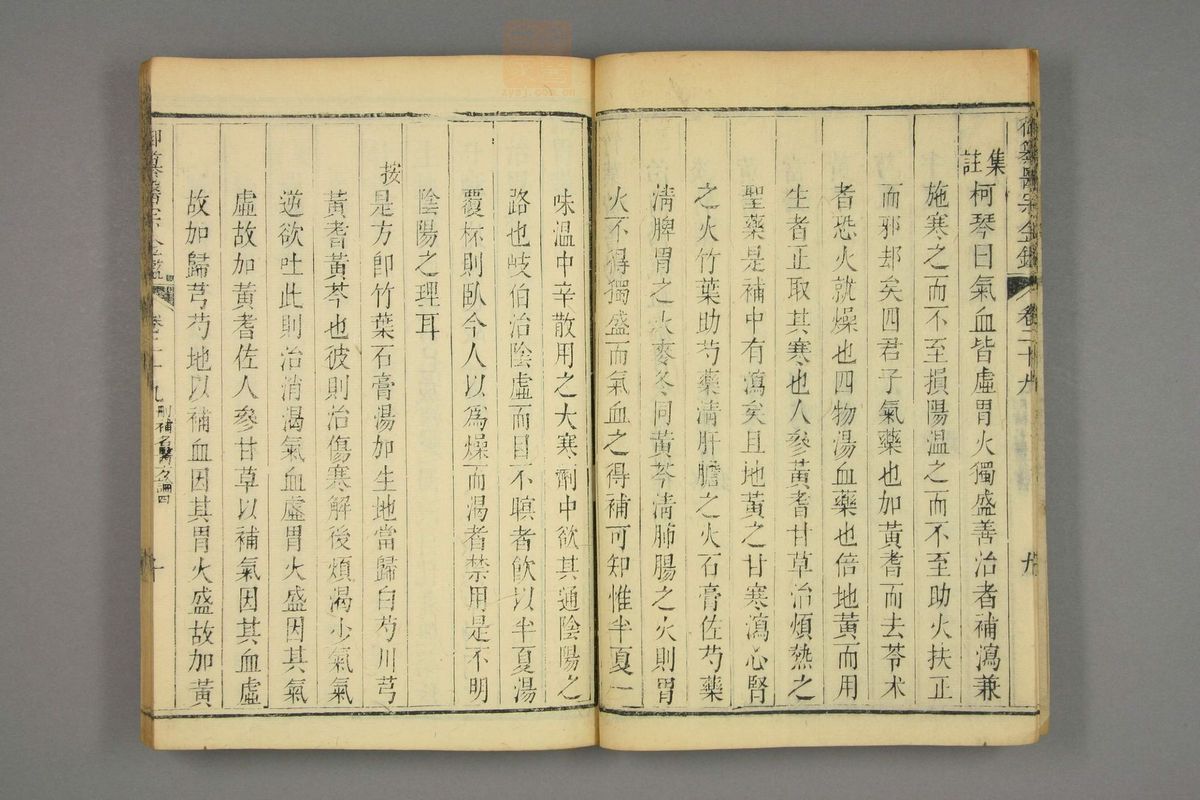 御纂醫宗金鑑
卷二十九
九
集註
柯琴曰氣血皆虛胃火獨盛善治者補瀉兼
施寒之而不至損陽溫之而不至助火扶正
而邪却矣四君子氣藥也加黃耆而去苓术
者恐火就燥也四物湯血藥也倍地黃而用
生者正取其寒也人參黃耆甘草治煩熱之
聖藥是補中有瀉矣且地黃之甘寒瀉心腎
之火竹葉助芍藥清肝膽之火石膏佐芍藥
清脾胃之火麥冬同黃芩清肺腸之火則胃
火不得獨盛而氣血之得補可知惟半夏一
味溫中辛散用之大寒劑中欲其通陰陽之
路也岐伯治陰虛而目不瞑者飲以半夏湯
覆杯則臥今人以爲燥而渴者禁用是不明
陰陽之理耳
按是方卽竹葉石膏湯加生地當歸白芍川芎
黃耆黃芩也彼則治傷寒解後煩渴少氣氣
逆欲吐此則治消渴氣血虛胃火盛因其氣
虛故加黃耆佐人參甘草以補氣因其血虛
故加歸芎芍地以補血因其胃火盛故加黃
御纂醫宗金鑑
卷二十九
刪補名醫方論四
十
zysj.com.cn